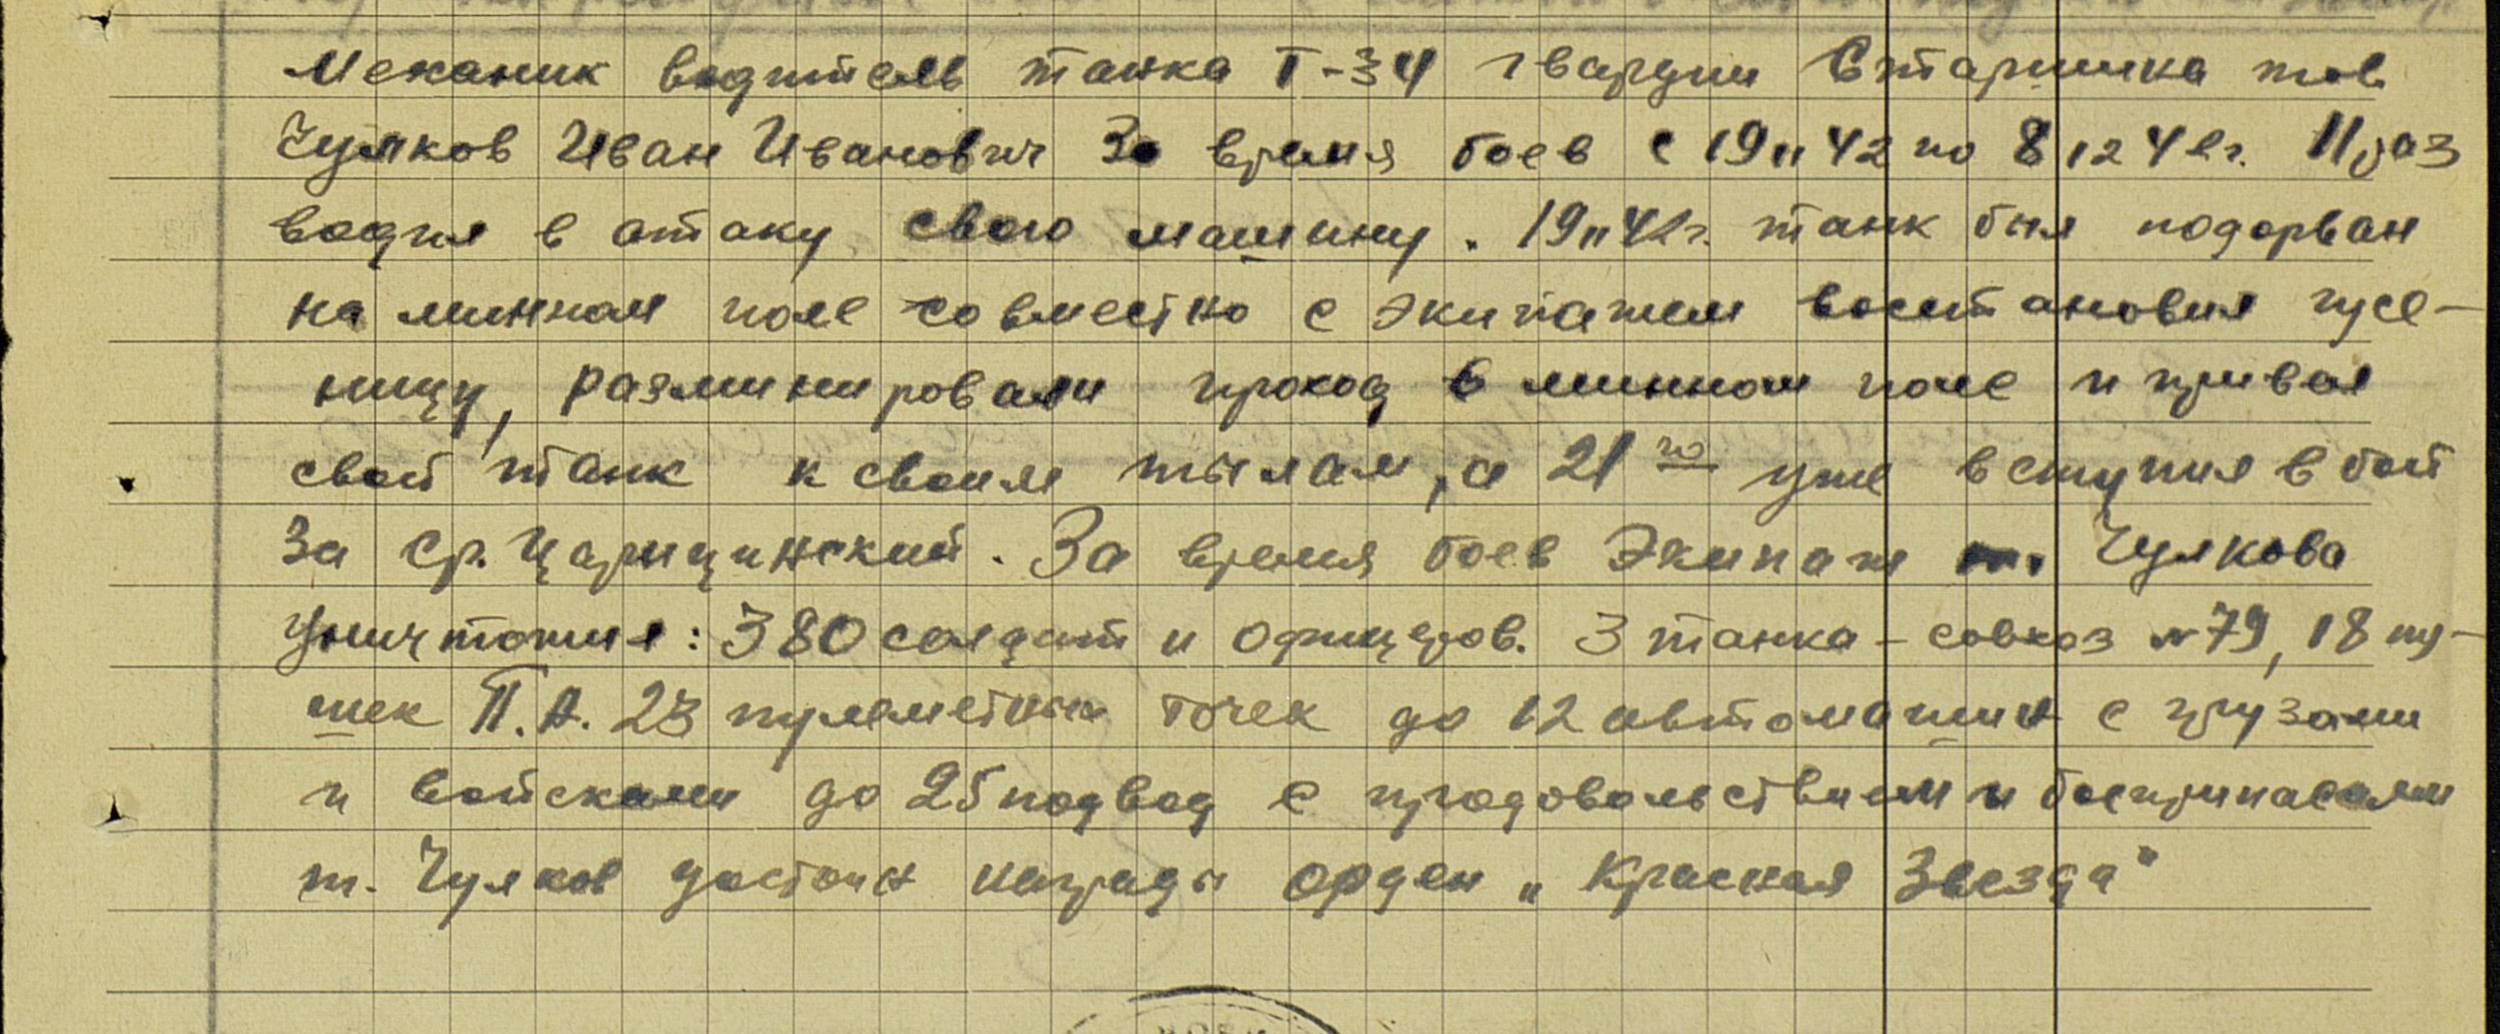 Механик водитель танка Т-34 гвардии Старшина тов.
Чулков Иван Иванович За время боев с 19 11 42 по 8 12 42г. 11 раз
водил в атаку свою машину. 19 11 42г. танк был подорван
на минном поле совместно с экипажем восстановил гусе-
ницу, разминировали проход в минном поле и привел
свой танк к своим тылам, а 21го уже вступил в бой
За Ср. Царицинский. За время боев Экипаж т. Чулкова
Уничтожил: 380 солдат и офицеров. 3 танка - совхоз №79, 18 пу-
шек П.А. 23 пулеметных точек до 12 автомашин с грузами
и войсками до 25 подвод с продовольствием и боеприпасами
т. Чулков достоин награды орден "Красная Звезда"